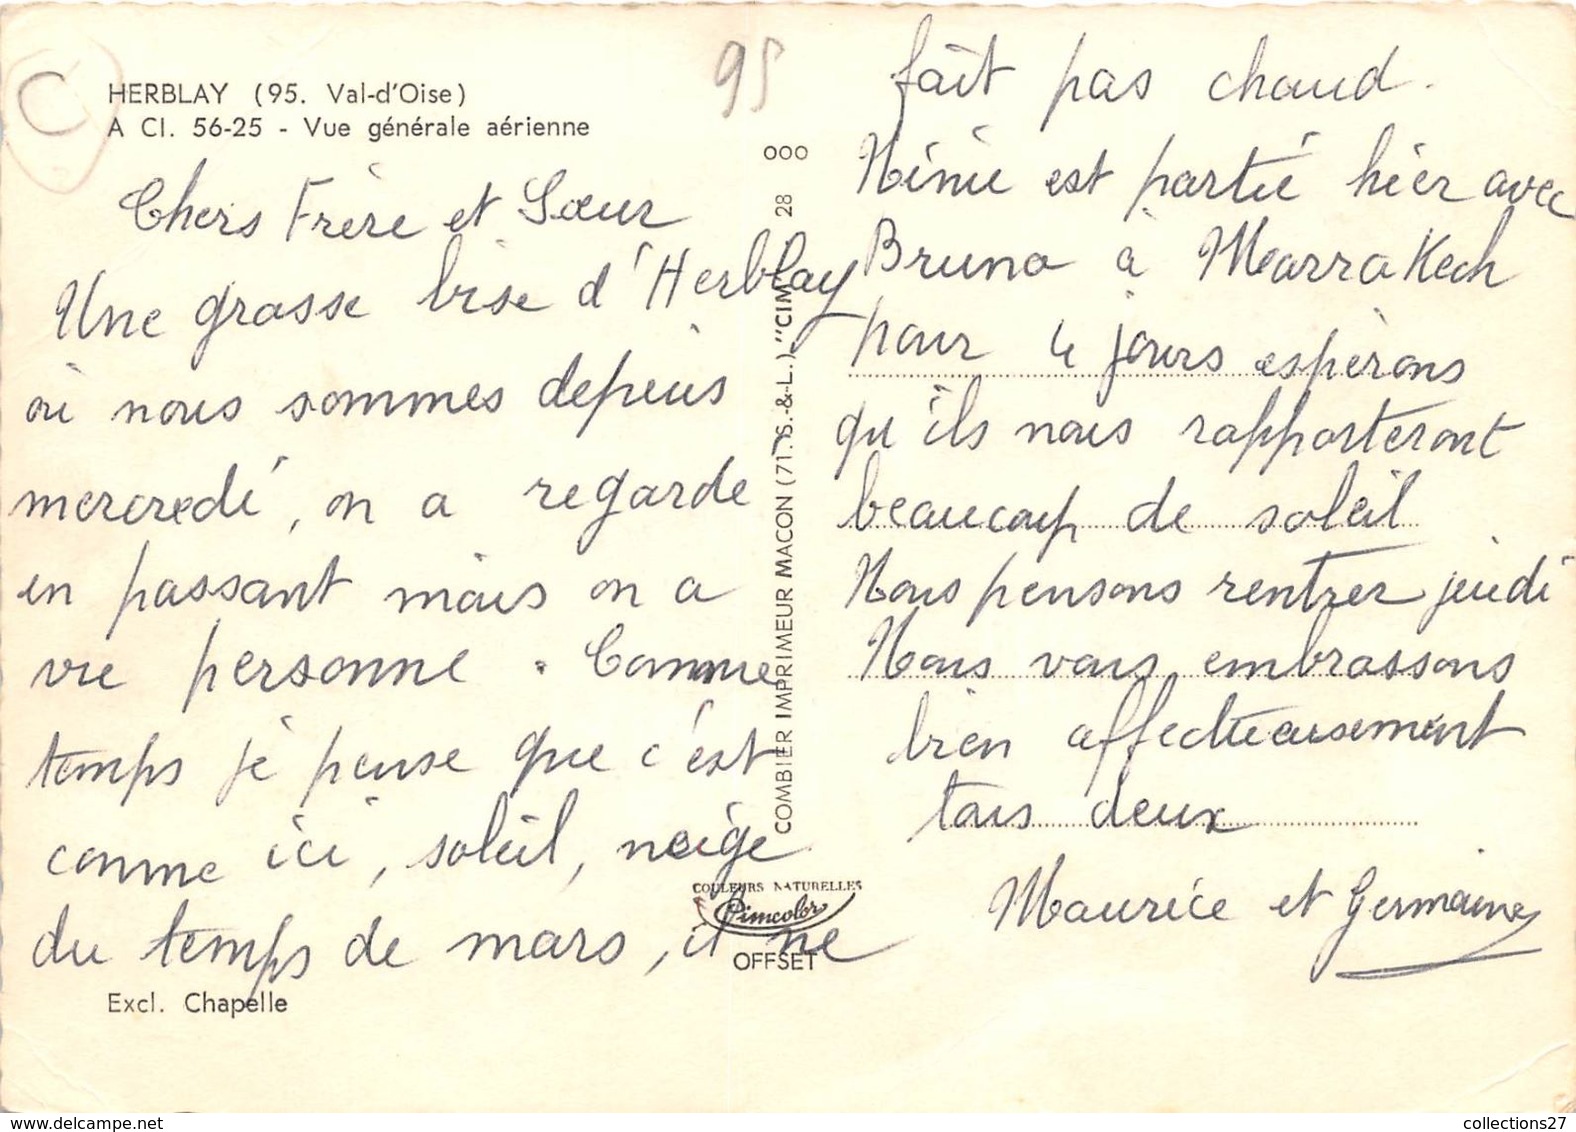 HERBLAY (95. Val-d'Oise)
A Cl. 56-25 - Vue générale aérienne
Chers Frère et Sœur
Une grosse bise d'Herblay
où nous sommes depuis
mercredi, on a regardé
en passant mais on a
vu personne. Comme
temps je pense que c'est
comme ici, soleil, neige
du temps de mars, il ne
Excl. Chapelle
95
OOO
COMBIER IMPRIMEUR MACON (71. S.-&-L.) "CIM" 28
COULEURS NATURELLES
Cimcolor
OFFSET
fait pas chaud.
Ninie est partie hier avec
Bruno à Marrakech
pour 4 jours espérons
qu'ils nous rapporteront
beaucoup de soleil
Nous pensons rentrer jeudi
Nous vous embrassons
bien affectueusement
tous deux
Maurice et Germaine
collections27